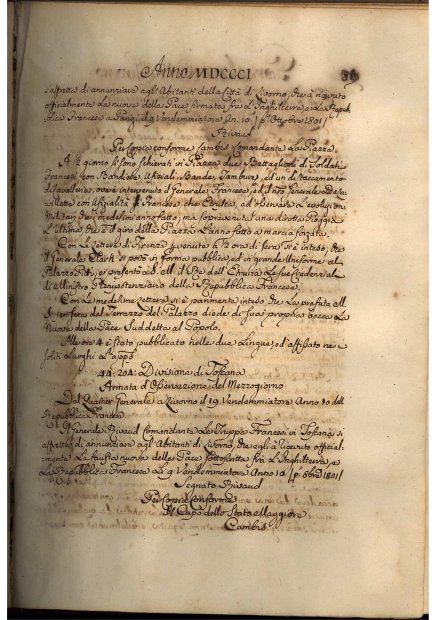 Anno MDCCCI
s'affretta di annunziare agl'Abitanti della Città di Livorno, che à ricevuto
officialmente La nuova della Pace firmata fra L'Inghilterra, e La Repub-
blica Francese a Parigi il 9 Vendemmiatore An. 10. 1801
Rivaud
Per Copia conforme Cambis Comandante La Piazza.
A giorno si sono schierati in Piazza due Battaglioni di Soldati
Francesi con Bandiere, Ufizali, Bande, Tamburi, ed un distaccamento
di Cavalleria, ov'è intervenuto il Generale Francese, ed il Generale
con Ufizialità Francese che Civica, ad osservare L'evoluzioni
Militari che i medesimi anno fatto; ma sopravenuta una dirotta Pioggia
L'ultima, che è il giro della Piazza L'anno fatto a marcia forzata.
Con La Lettera di Firenze venuta a di sera si è inteso, che
il Generale Clark si portò in forma pubblica, ed in grande Uniforme al
Palazzo Pitti, e presentò a S. M. il Rè dell'Etruria Le sue Credenziali
di Ministro Plenipotenziario della Repubblica Francese.
Con Le medesime Lettere si è parimente inteso che La prefata M.
S. Terrazzo del Palazzo diede di sua propria bocca La
Nuova della Pace Suddetta al Popolo.
Alle ore 4 è stato pubblicato nelle due Lingue, ed affissato ne
soliti Luoghi L'app.o
44: 204: Divisione di Toscana
Armata d'Osservazione del Mezzogiorno
Dal Quartier Generale a Livorno il 19 Vendemmiatore Anno 10 della
Repubblica Francese
Il Generale Rivaud Comandante Le Truppe Francesi in Toscana si
affretta di annunziare agl'Abitanti di Livorno, che egli à ricevuto official-
mente La fausta nuova della Pace sottoscritta fra L'Inghilterra, e
La Repubblica Francese Le 9 Vendemmiatore Anno 10 1801
Segnato Rivaud
Per Copia Conforme
Il Capo dello Stato Maggiore
Cambis